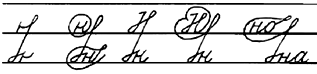 н н Н Н но
н н н н на